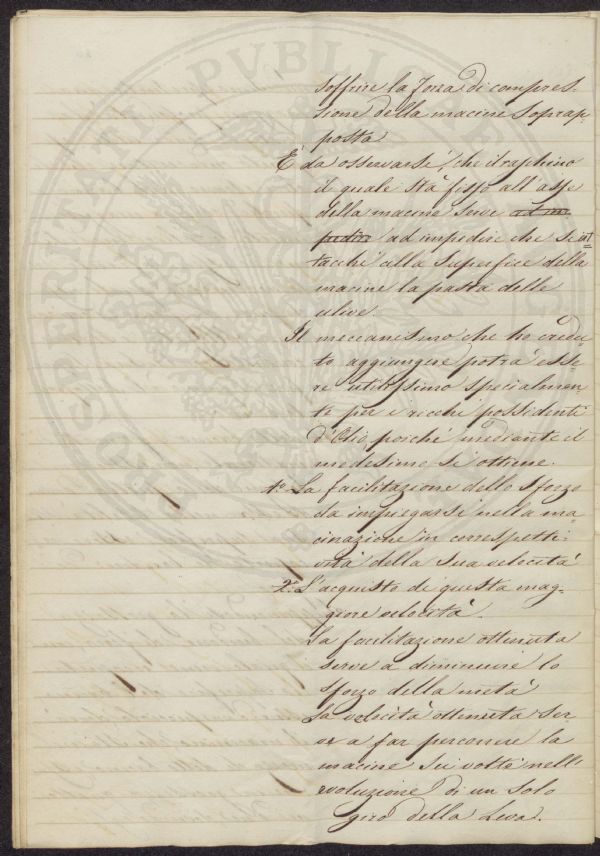 soffrire la forza di compres-
sione della macine soprap-
posta
E' da osservarsi, che il raphino
il quale stà fisso all'asse
della macine serve ad im
pedire ad impedire che si at
tacchi alla superfice della
macine la pasta delle
ulive.
Il meccanismo che ho credu
to aggiungere potrà esse
re utilissimo specialmen
te per i ricchi possidenti
d'Olio, perché mediante il
medesimo si ottiene.
1º La facilitazione dello sforzo
da impiegarsi nella ma
cinazione in correspetti-
vità della sua velocità
2º L'acquisto di questa mag-
giore velocità.
La facilitazione ottenuta
serve a diminuire lo
sforzo della metà
La velocità ottenuta ser
ve a far percorrere la
macine sei volte nell'
rvoluzione di un solo
giro della Leva.
PROSPERITATI PVBLICAE